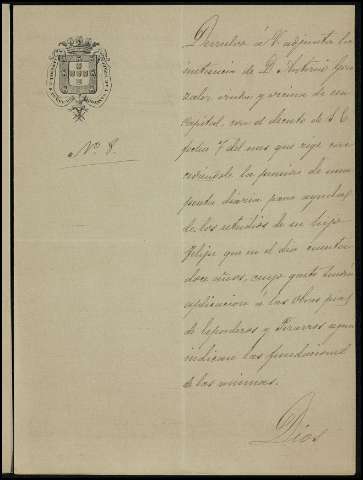 Nº 8.
Devuelvo á V. adjunta la
instancia de D. Antonio Gon
zalez, vecino de esa
capital, con el decreto de S. E.
fecha 7 del mes que rige con
cediendole la pension de una
peseta diaria para ayuda
de los estudios de su hijo
Felipe que en el dia cuenta
doce años, cuyo gasto tendrá
aplicacion á las Obras pias
de y Pizarro segun
indican las fundaciones
de las mismas.
Dios